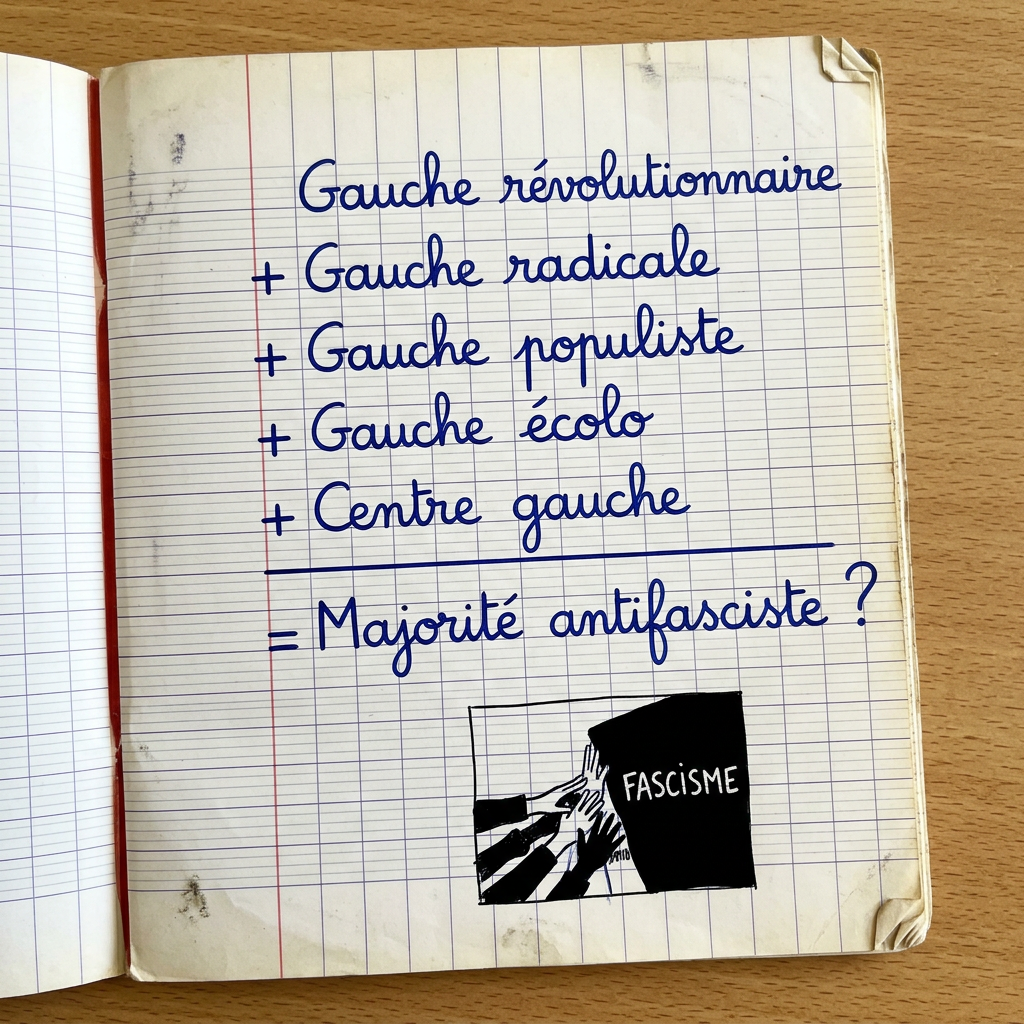 Gauche révolutionnaire
+ Gauche radicale
+ Gauche populiste
+ Gauche écolo
+ Centre gauche
= Majorité antifasciste ?
FASCISME